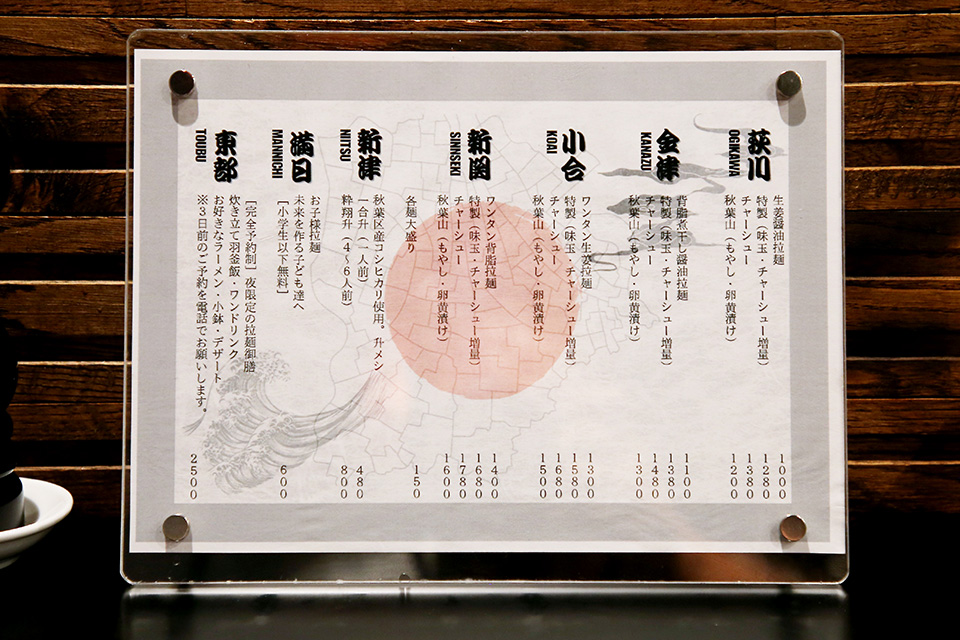 荻川
OGIKAWA
生姜醤油拉麺 1000
特製（味玉・チャーシュー増量） 1280
チャーシュー 1380
秋葉山（もやし・卵黄漬け） 1200
金津
KANAZU
背脂煮干し醤油拉麺 1100
特製（味玉・チャーシュー増量） 1380
チャーシュー 1480
秋葉山（もやし・卵黄漬け） 1300
小合
KOAI
ワンタン生姜拉麺 1300
特製（味玉・チャーシュー増量） 1580
チャーシュー 1680
秋葉山（もやし・卵黄漬け） 1500
新関
SINNSEKI
ワンタン背脂拉麺 1400
特製（味玉・チャーシュー増量） 1680
チャーシュー 1780
秋葉山（もやし・卵黄漬け） 1600
各麺大盛り 150
新津
NIITSU
秋葉区産コシヒカリ使用。升メシ
一合升（一人前） 480
粋翔升（４〜６人前） 800
満日
MANNICHI
お子様拉麺 600
未来を作る子ども達へ
［小学生以下無料］
東部
TOUBU
［完全予約制］夜限定の拉麺御膳
炊き立て羽釜飯・ワンドリンク
お好きなラーメン・小鉢・デザート
※３日前のご予約を電話でお願いします。 2500